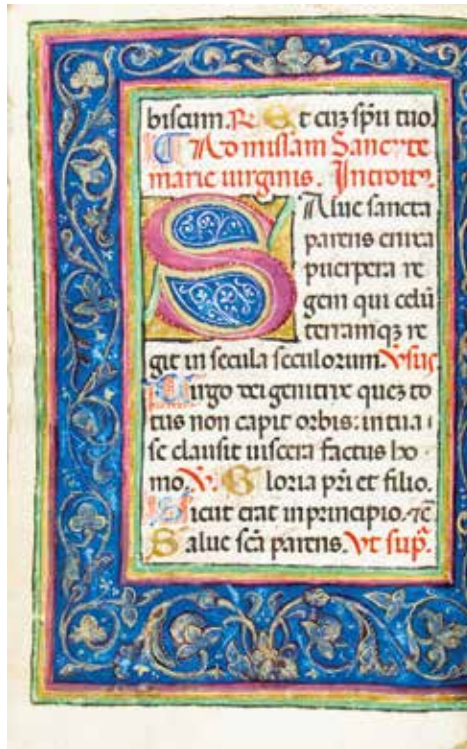 biscum. R. Et cuz spu tuo.
Ad missam Sancte
marie uirginis. Introit9.
Salue sancta
parens enixa
puerpera re
gem qui celū
terramqz re
git in secula seculorum. Vsus.
Uirgo dei genitrix quez to
tus non capit orbis: in tua i
se clausit uiscera factus ho
mo. V. Gloria pri et filio.
Sicut erat in principio. 7c̄
Salue scā parens. Vt sup̄.